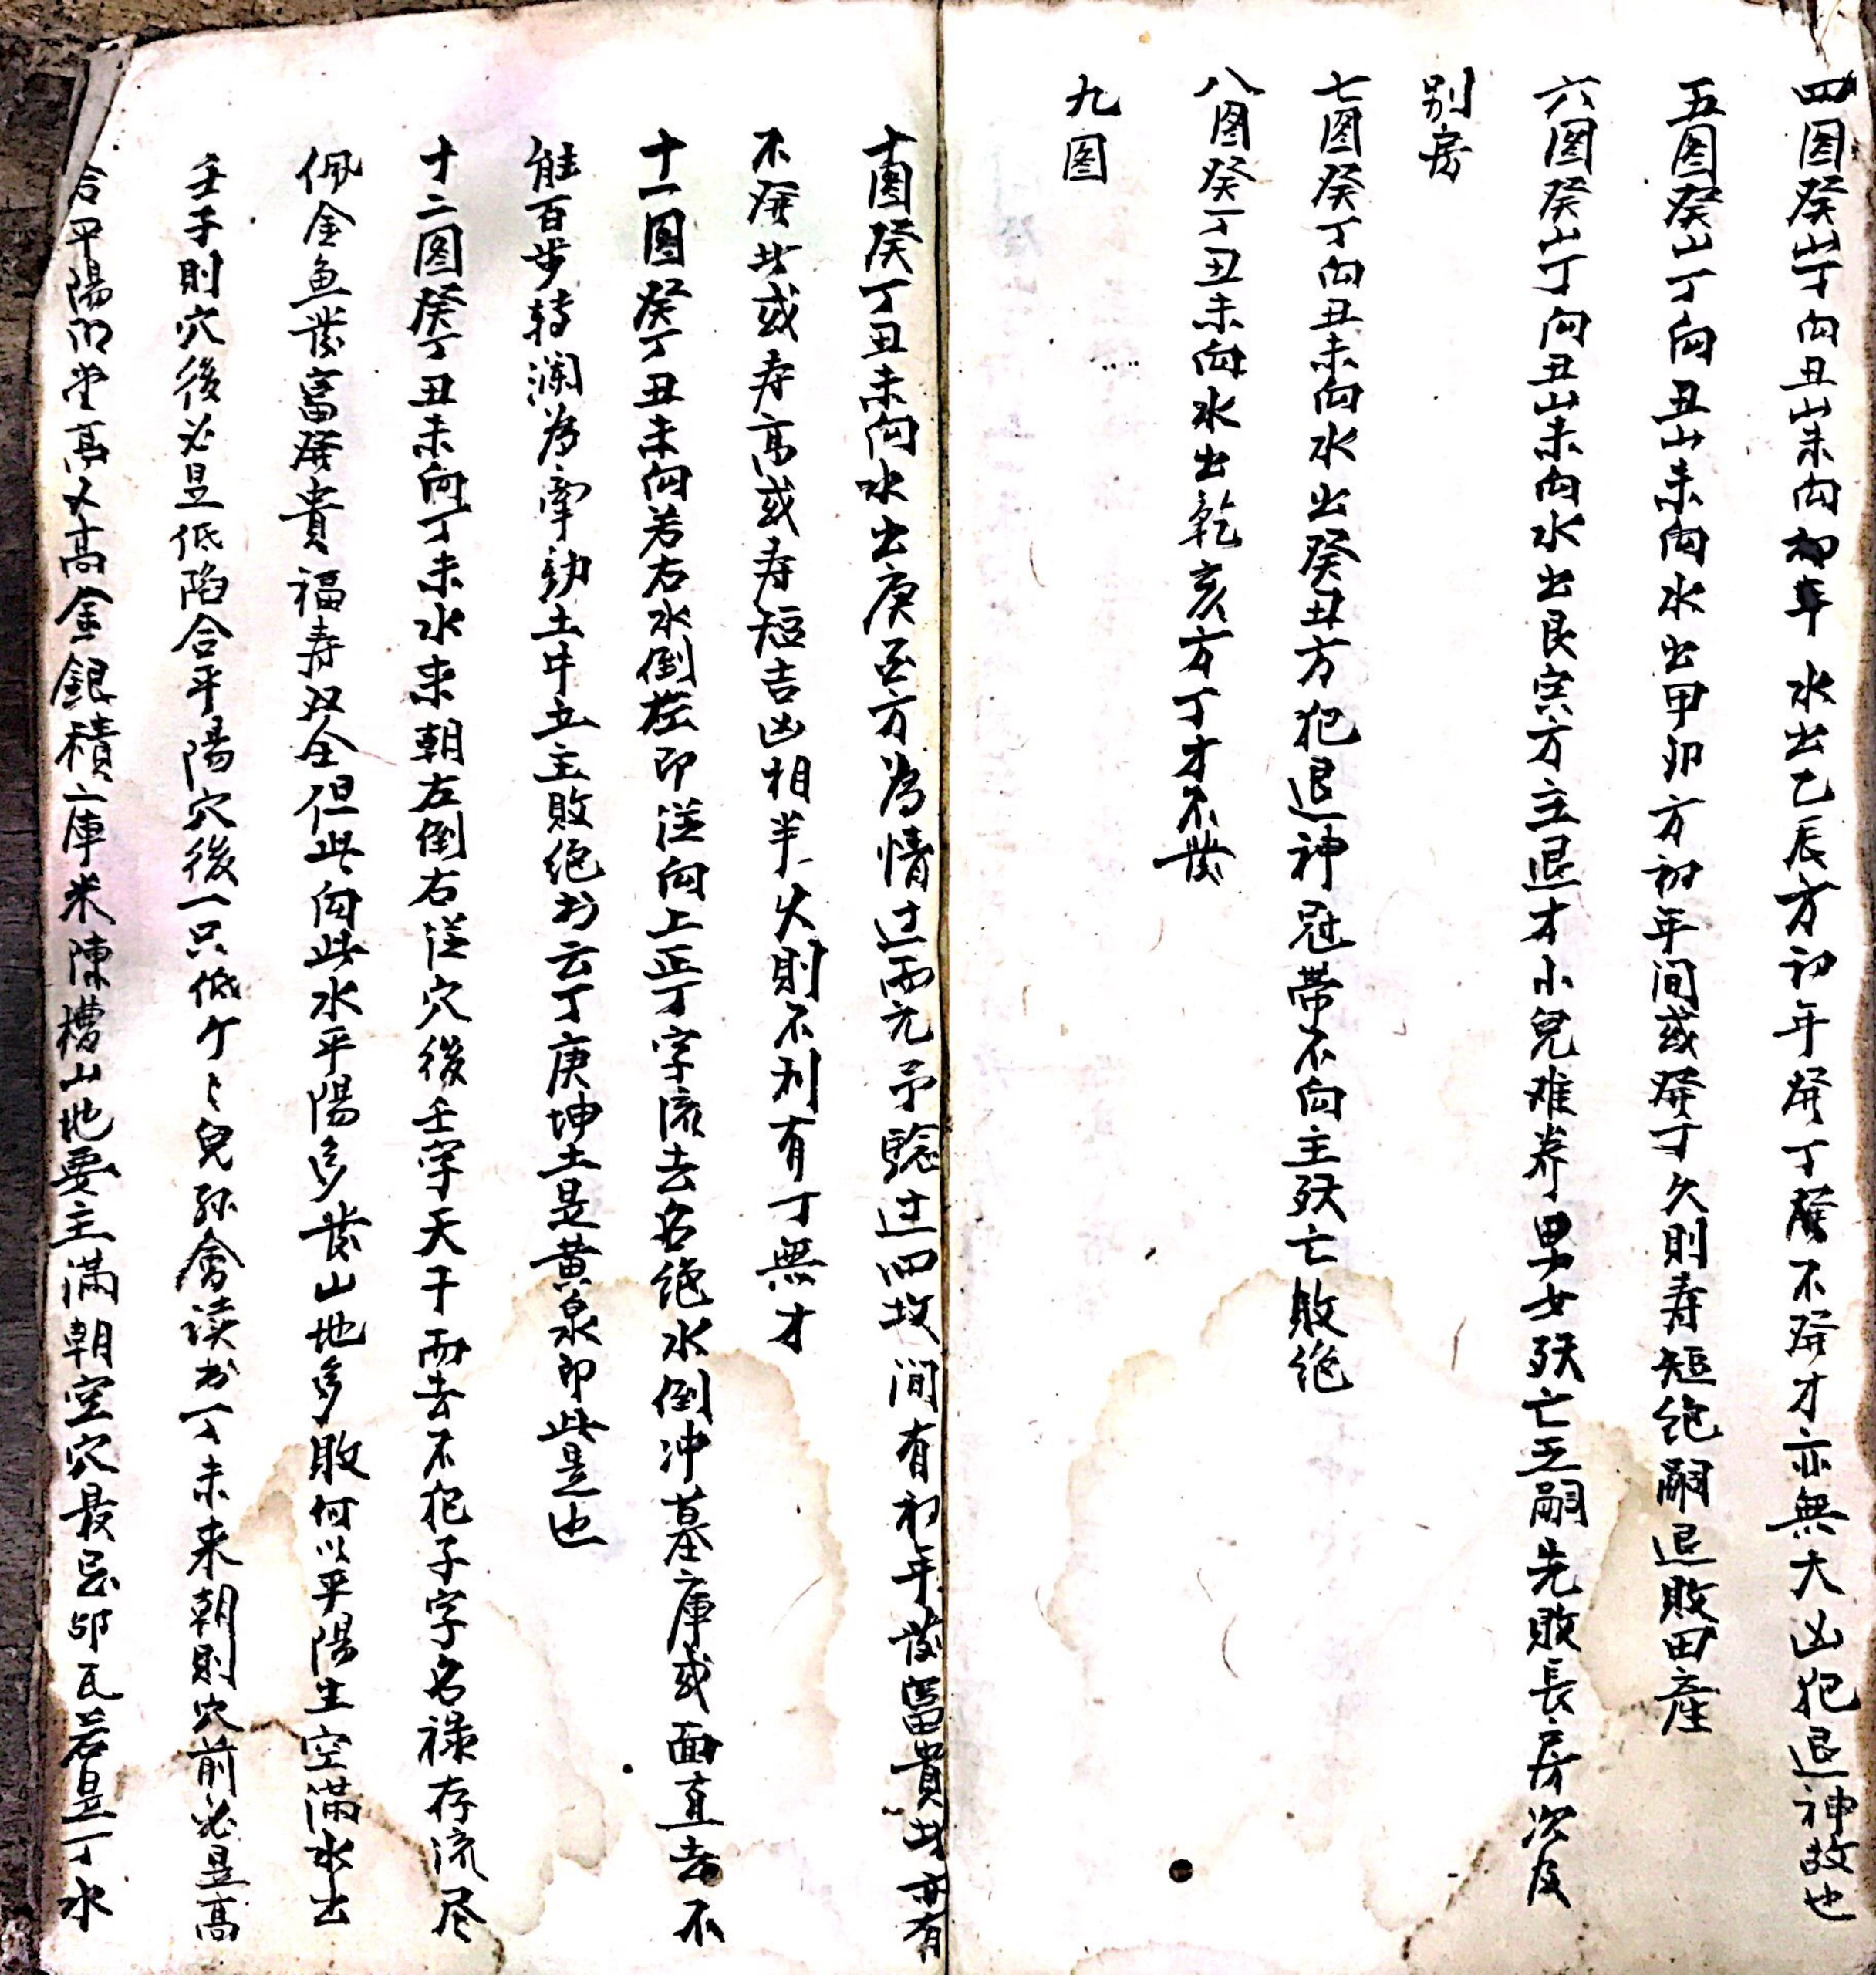 四图癸山丁向丑山未向初年水出乙辰方初年發丁發不發才亦無大凶犯退神故也
五图癸山丁向丑山未向水出甲卯方初年间或發丁久則寿短绝嗣退敗田產
六图癸山丁向丑山未向水出艮寅方主退才小兒难养男女殀亡乏嗣先敗長房次及
别房
七图癸丁向丑未向水出癸丑方犯退神冠帶不向主殀亡敗绝
八图癸丁丑未向水出乾亥方丁才不發
九图
十图癸丁丑未向水出庚酉方為情过而亢予驗过四坟间有初年發富貴者亦有
不發者或寿高或寿短吉凶相半久則不利有丁無才
十一图癸丁丑未向若右水倒左即從向上正丁字流去名绝水倒冲墓庫或面直去不
能百步转澜為牽動土牛立主敗绝书云丁庚坤上是黄泉即此是也
十二图癸丁丑未向丁未水来朝左倒右從穴後壬字天干而去不犯子字名禄存流尽
佩金鱼發富發貴福寿双全但此向此水平陽多發山地多敗何以平陽生空满水出
壬子則穴後必是低陷合平陽穴後一只低个々兒孙會读书丁未来朝則穴前必是高
合平陽明堂高又高金銀積庫米陳槽山地要主满朝空穴最忌卬瓦若是丁水